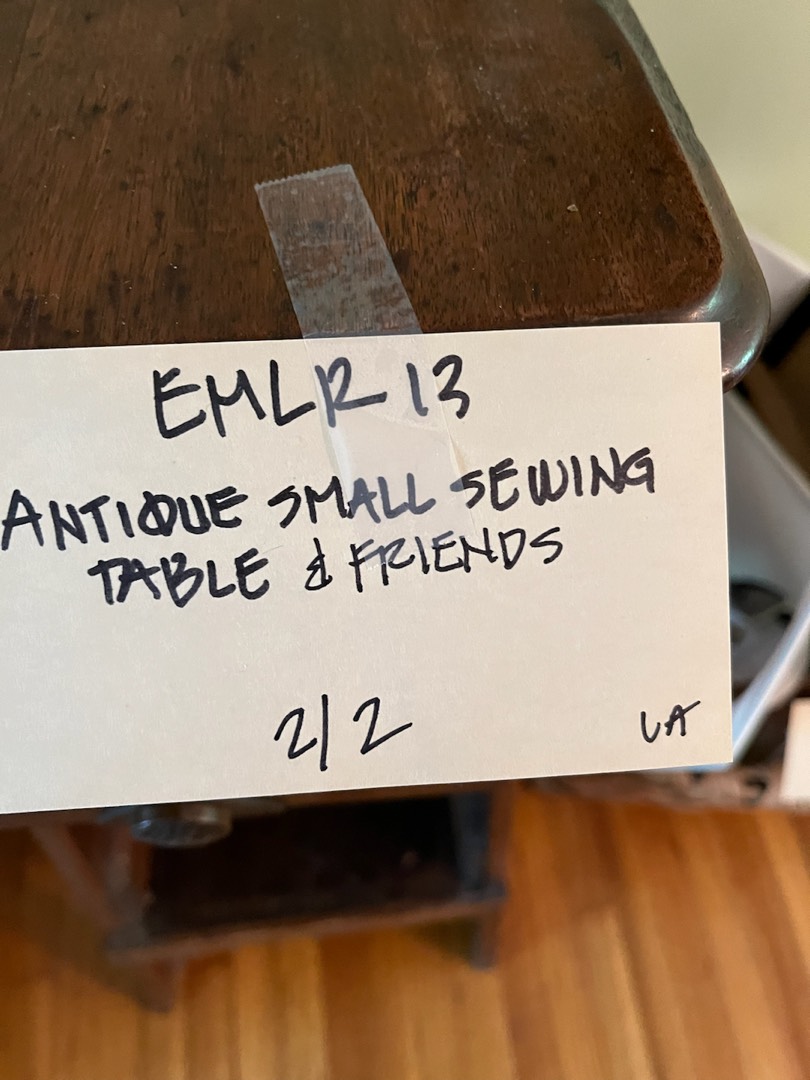 EMLR 13
ANTIQUE SMALL SEWING
TABLE & FRIENDS
2/2
LA